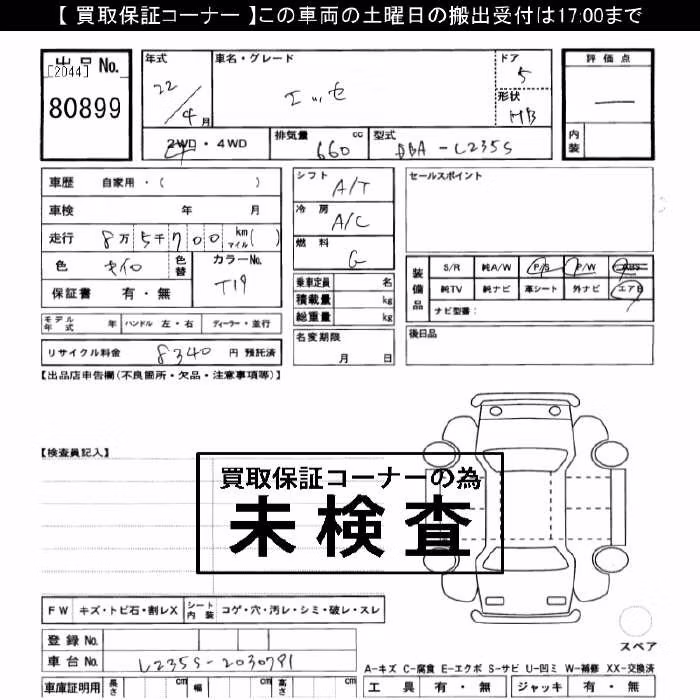 【 買取保証コーナー 】この車両の土曜日の搬出受付は17:00まで
出品No.
[2044]
80899
年式
22/4月
車名・グレード
エッセ
ドア
5
形状
HB
評価点
内装
2WD・4WD
排気量 660 cc
型式 DBA-L235S
車歴 自家用・( )
車検 年 月
走行 8万5千700 km マイル( )
色 キイロ 色替 カラーNo. T19
保証書 有・無
モデル年式 年 ハンドル 左・右 ディーラー・並行
リサイクル料金 8340 円 預託済
シフト A/T
冷房 A/C
燃料 G
乗車定員 名
積載量 kg
総重量 kg
名変期限
月 日
セールスポイント
装備品
S/R 純A/W P/S P/W ABS
純TV 純ナビ 革シート 外ナビ エアB
ナビ型番:
後日品
【出品店申告欄(不良箇所・欠品・注意事項等)】
【検査員記入】
買取保証コーナーの為
未検査
FW キズ・トビ石・割レX シート内装 コゲ・穴・汚レ・シミ・破レ・スレ
スペア
登録No.
車台No. L235S-2030791
A-キズ C-腐食 E-エクボ S-サビ U-凹ミ W-補修 XX-交換済
車庫証明用 長さ cm 幅 cm 高さ cm
工具 有・無 ジャッキ 有・無